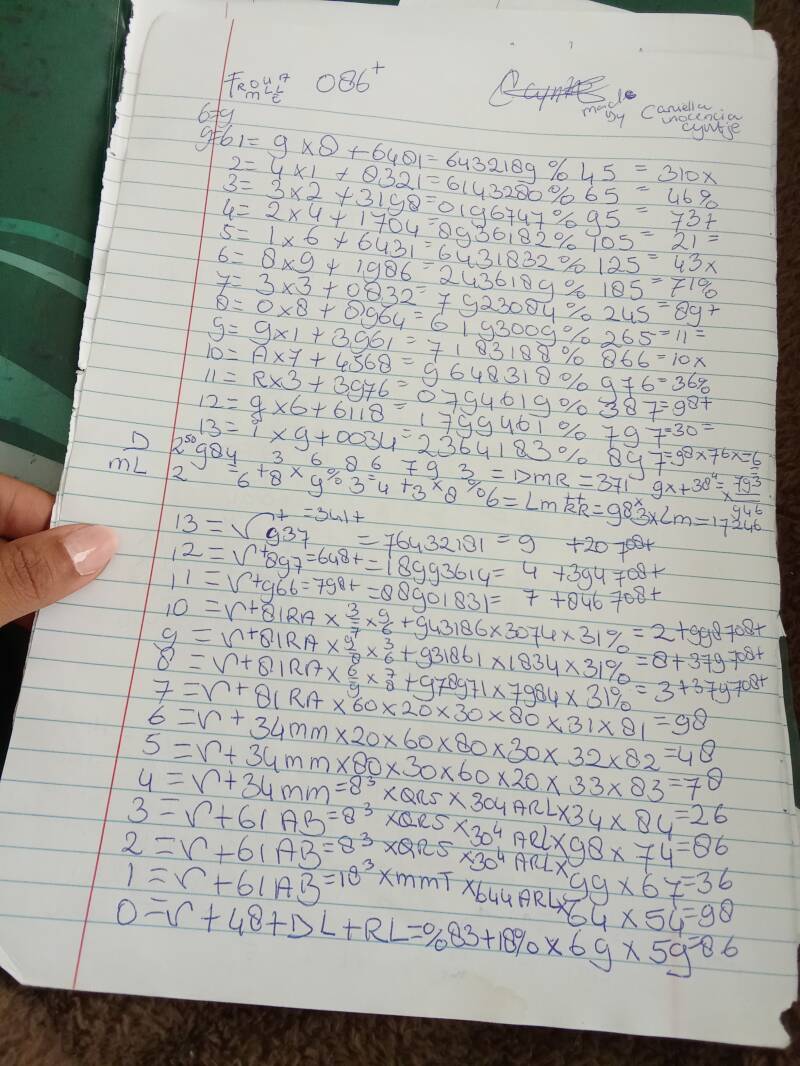 086+
made by Camella inocencia cyntje
6=g
g=61= g x 8 + 6481= 6432189 % 45 = 310x
2= 4x1 + 8321= 6143280 % 65 = 46%
3= 3x2 + 3198= 0196747 % 95 = 737
4= 2x4 + 1704= 8936182 % 105 = 21=
5= 1x6 + 6431= 6431832 % 125 = 43x
6= 8x9 + 1986= 2436189 % 185 = 71%
7= 3x3 + 0832= 7923084 % 245 = 89+
8= 0x8 + 8964= 6193009 % 265 = 11=
9= 9x1 + 3961= 7183188 % 866 = 10x
10= Ax7 + 4568= 9648318 % 976 = 36%
11= Rx3 + 3976= 0794619 % 387 = 98+
12= gx6 + 6118= 1799461 % 797 = 30=
13= 1 x 9 + 0034= 2364183 % 897 = 98x76x=6
D
mL
= DMR = 371
13 = √+ 937 = 341+ = 76432181 = 9 + 20 708+
12 = √+ 897 = 648+ = 18993614 = 4 + 394 708+
11 = √+ 966 = 798+ = 88901831 = 7 + 846 708+
10 = √+81RA x 3/7 x 9/6 + 943186 x 3074 x 31% = 2 + 998708+
9 = √+81RA x 9/8 x 3/6 + 931861 x 1834 x 31% = 8 + 379708+
8 = √+81RA x 6/9 x 7/8 + 978971 x 7984 x 31% = 3 + 379708+
7 = √+81RA x 60 x 20 x 30 x 80 x 31 x 81 = 98
6 = √+34mm x 20 x 60 x 80 x 30 x 32 x 82 = 48
5 = √+34mm x 80 x 30 x 60 x 20 x 33 x 83 = 78
4 = √+34mm = 8³ x QRS x 304 ARL x 34 x 84 = 26
3 = √+61AB = 8³ x QRS x 30⁴ ARL x 98 x 74 = 86
2 = √+61AB = 8³ x QRS x 30⁴ ARL x 99 x 67 = 36
1 = √+61AB = 18³ x mmT x 644 ARL x 64 x 54 = 98
0 = √+48+DL+RL=%83+18% x 69 x 59 = 86